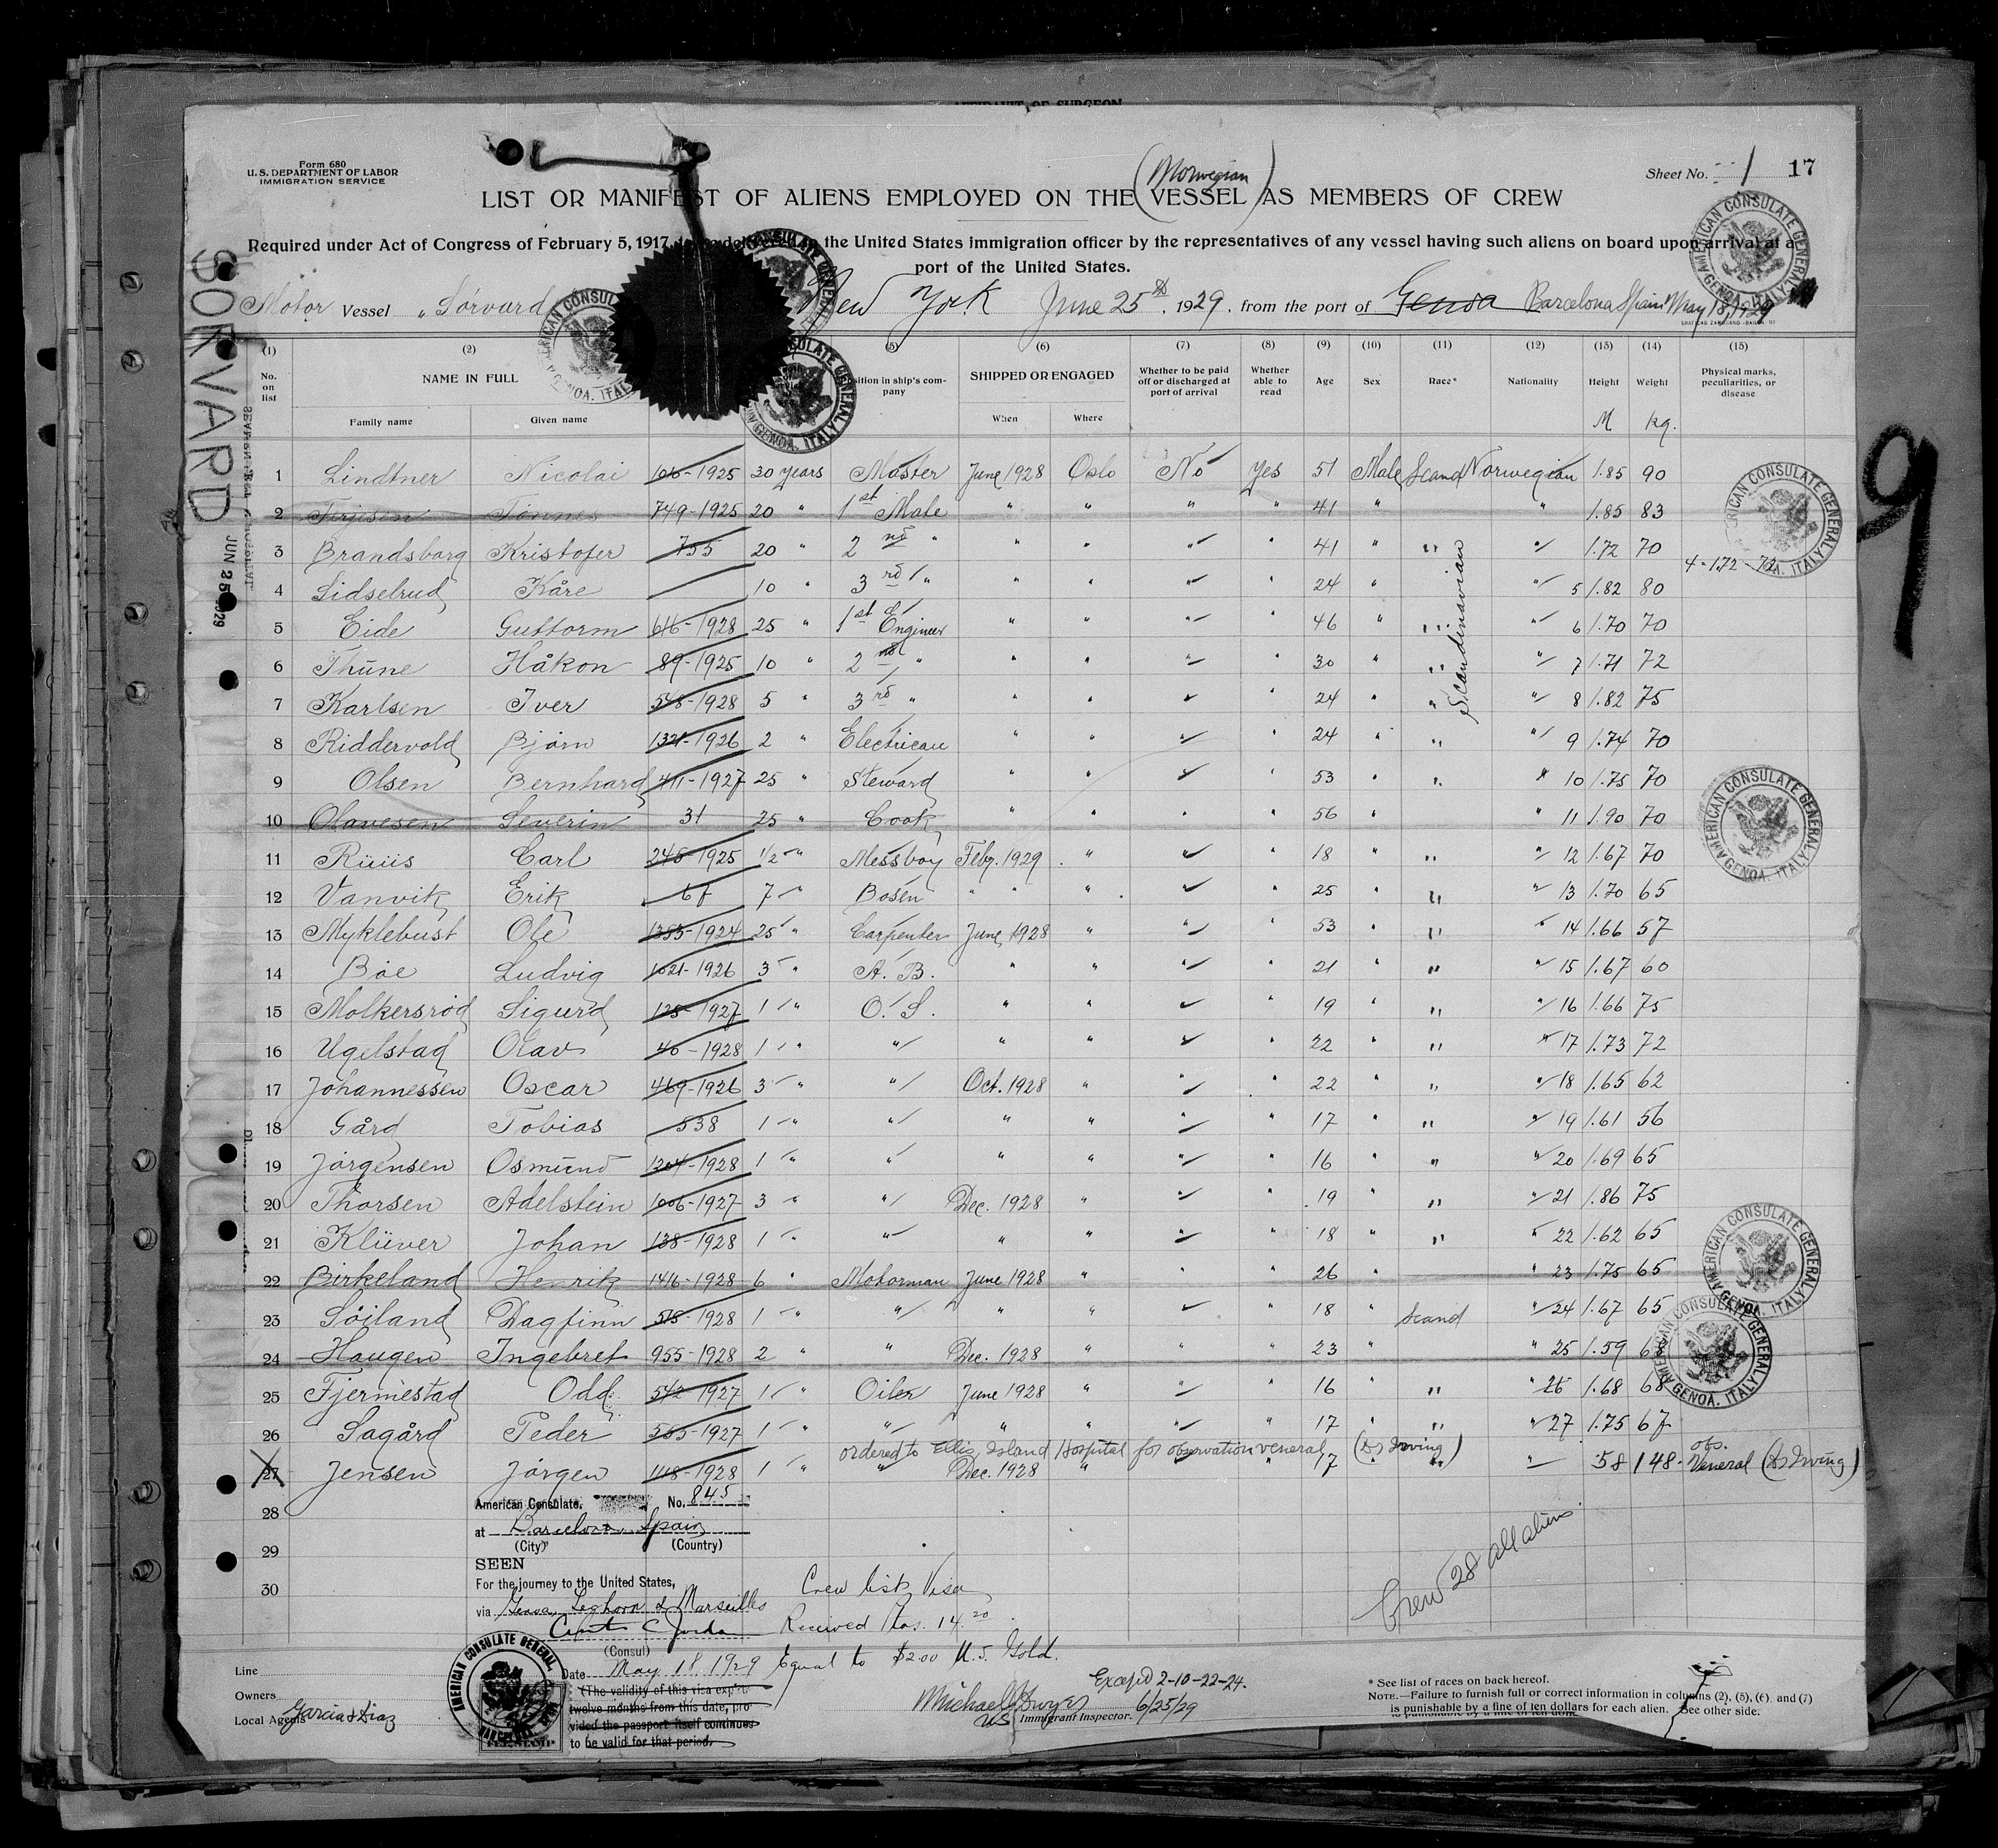 AFFIDAVIT OF SURGEON
Form 680
U.S. DEPARTMENT OF LABOR
IMMIGRATION SERVICE
Sheet No. 1 17
(Norwegian)
LIST OR MANIFEST OF ALIENS EMPLOYED ON THE VESSEL AS MEMBERS OF CREW
Required under Act of Congress of February 5, 1917, the United States immigration officer by the representatives of any vessel having such aliens on board upon arrival at a
port of the United States.
Motor Vessel "Sörvard New York June 25th, 1929, from the port of Genoa Barcelona Spain May 18, 1929
SORVARD
JUN 25 1929
9
(1) (2) (5) (6) (7) (8) (9) (10) (11) (12) (13) (14) (15)
No. on list NAME IN FULL Position in ship's company SHIPPED OR ENGAGED Whether to be paid off or discharged at port of arrival Whether able to read Age Sex Race* Nationality Height Weight Physical marks, peculiarities, or disease
Family name Given name When Where M kg.
1 Lindtner Nicolai 106-1925 30 years Master June 1928 Oslo No Yes 51 Male Scand Norwegian 1.85 90
2 Terjesen Tönnes 749-1925 20 " 1st Mate " " " " 41 " " 1.85 83
3 Brandsborg Kristofer 755 20 " 2nd " " " " " 41 " " " 1.72 70
4-1.72-72
4 Sidselrud Kåre 10 " 3rd " " " " " 24 " " 5 1.82 80
5 Eide Guttorm 616-1928 25 " 1st Engineer " " " " 46 " " " 6 1.70 70
6 Thune Håkon 89-1925 10 " 2nd " " " " " 30 " " " 7 1.71 72
7 Karlsen Iver 548-1928 5 " 3rd " " " " " 24 " " " 8 1.82 75
Scandinavian
8 Riddervold Björn 1321-1926 2 " Electrican " " " " 24 " " " 9 1.74 70
9 Olsen Bernhard 411-1927 25 " Steward " " " " 53 " " " 10 1.75 70
10 Olavesen Severin 31 25 " Cook " " " " 56 " " 11 1.90 70
11 Rüüs Carl 245-1925 1/2 " Messboy Feby. 1929 " " " 18 " " " 12 1.67 70
12 Vanvik Erik 7 " Bosen " " " " " 25 " " " 13 1.70 65
13 Myklebust Ole 1353-1924 25 " Carpenter June 1928 " " " 53 " " " 14 1.66 57
14 Böe Ludvig 1021-1926 3 " A. B. " " " " 21 " " " 15 1.67 60
15 Molkersröd Sigurd 125-1927 1 " O. S. " " " " 19 " " " 16 1.66 75
16 Ugelstad Olav 40-1928 1 " " " " " " 22 " " " 17 1.73 72
17 Johannessen Oscar 469-1926 3 " " Oct. 1928 " " " 22 " " " 18 1.65 62
18 Gård Tobias 538 1 " " " " " " 17 " " " 19 1.61 56
19 Jörgensen Osmund 1204-1928 1 " " " " " " 16 " " " 20 1.69 65
20 Thorsen Adelstein 1006-1927 3 " " Dec. 1928 " " " 19 " " " 21 1.86 75
21 Klüver Johan 138-1928 1 " " " " " " 18 " " " 22 1.62 65
22 Birkeland Henrik 1416-1928 6 " Motorman June 1928 " " " 26 " " 23 1.75 65
23 Söiland Dagfinn 515-1928 1 " " " " " " 18 " Scand " 24 1.67 65
24 Haugen Ingebret 955-1928 2 " " Dec. 1928 " " " 23 " " 25 1.59
25 Fjermestad Odd 542-1927 1 " Oiler June 1928 " " " 16 " " " 26 1.68 68
26 Sagård Peder 585-1927 1 " " " " " " 17 " " " 27 1.75 67
ordered to Ellis Island Hospital for observation veneral (Dr Irving)
27 Jensen Jörgen 1118-1928 1 " " Dec. 1928 " " 17 " " " 58 148 obs. Veneral (Dr Irving)
28
29
30
American Consulate. No. 845
at Barcelona, Spain
(City) (Country)
SEEN
For the journey to the United States,
via Genoa, Leghorn & Marseilles
Curtis C Jordan
(Consul)
Date May 18, 1929
(The validity of this visa expires
twelve months from this date, pro
vided the passport itself continues
to be valid for that period.
Crew list Visa
Received Ptas. 14.20
Equal to $2.00 U.S. Gold.
Crew 28 all aliens
Line
Owners
Local Agents Garcia & Diaz
Except 2-10-22-24.
Michael J Dwyer 6/25/29
US Immigrant Inspector.
* See list of races on back hereof.
NOTE.—Failure to furnish full or correct information in columns (2), (5), (6) and (7)
is punishable by a fine of ten dollars for each alien. See other side.
AMERICAN CONSULATE GENERAL GENOA, ITALY
AMERICAN CONSULATE GENERAL
FEE STAMP